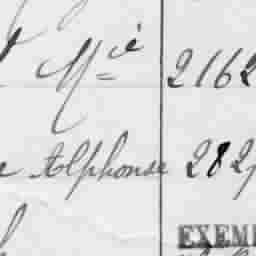 Mié 2162
Alphonse 282
EXEM